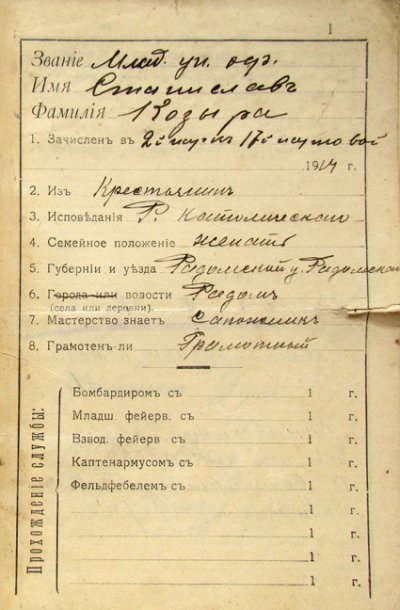 1
Званіе Млад. ун. оф.
Имя Станиславъ
Фамилія Козыра
1. Зачисленъ въ 2й 17й
1914 г.
2. Изъ Крестьянинъ
3. Исповѣданія Р. Католическаго
4. Семейное положеніе женатъ
5. Губерніи и уѣзда Радомской у. Радомскаго
6. Города или волости Радомъ
(села или деревни).
7. Мастерство знаетъ Сапожникъ
8. Грамотенъ-ли Грамотный
Прохожденіе службы:
Бомбардиромъ съ 1 г.
Младш. фейерв. съ 1 г.
Взвод. фейерв съ 1 г.
Каптенармусомъ съ 1 г.
Фельдфебелемъ съ 1 г.
1 г.
1 г.
1 г.
1 г.